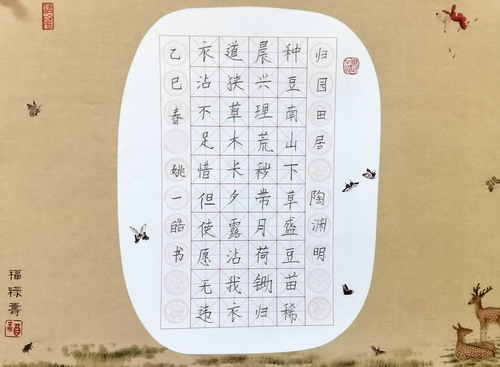 归园田居 陶渊明
种豆南山下草盛豆苗稀
晨兴理荒秽带月荷锄归
道狭草木长夕露沾我衣
衣沾不足惜但使愿无违
乙巳春 姚一皓书
福祿壽